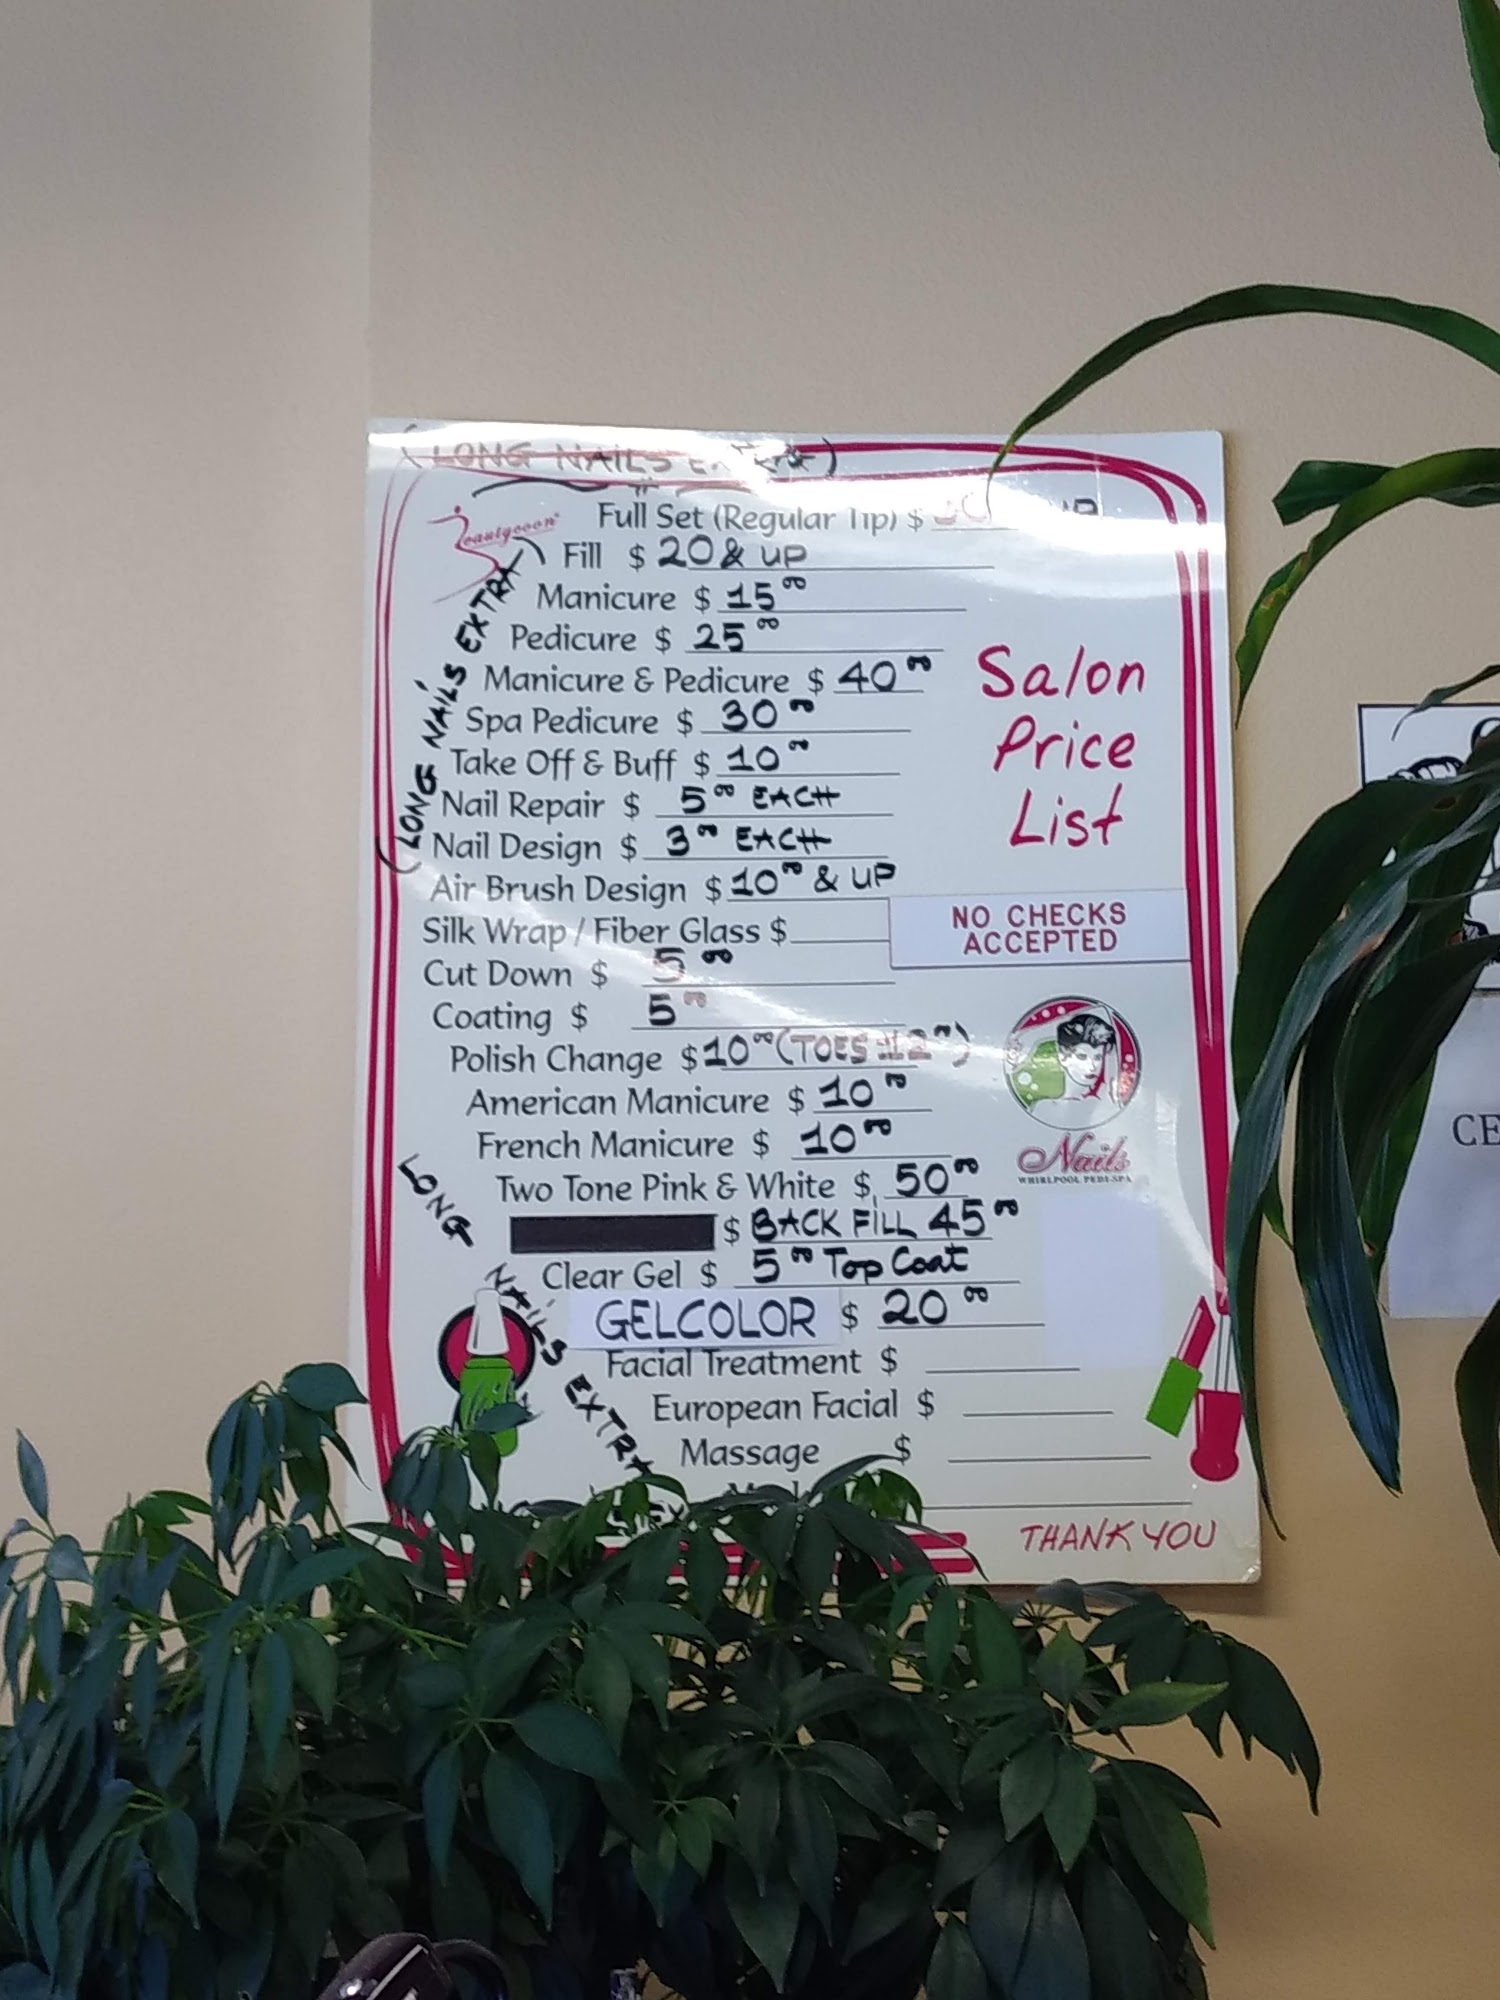 (LONG NAILS EXTRA)
Beautycoon
Full Set (Regular Tip) $ UP
Fill $ 20 & UP
Manicure $ 15⁰⁰
Pedicure $ 25⁰⁰
Manicure & Pedicure $ 40⁰⁰
Spa Pedicure $ 30⁰⁰
Take Off & Buff $ 10⁰⁰
Nail Repair $ 5⁰⁰ EACH
Nail Design $ 3⁰⁰ EACH
Air Brush Design $ 10⁰⁰ & UP
Silk Wrap / Fiber Glass $
Cut Down $ 5⁰⁰
Coating $ 5⁰⁰
Polish Change $ 10⁰⁰ (TOES $12⁰⁰)
American Manicure $ 10⁰⁰
French Manicure $ 10⁰⁰
Two Tone Pink & White $ 50⁰⁰
$ BACK FILL 45⁰⁰
Clear Gel $ 5⁰⁰ Top Coat
GELCOLOR $ 20⁰⁰
Facial Treatment $
European Facial $
Massage $
(LONG NAILS EXTRA)
LONG NAILS EXTRA
Salon
Price
List
NO CHECKS
ACCEPTED
Nails
WHIRLPOOL PEDI-SPA
THANK YOU
CE